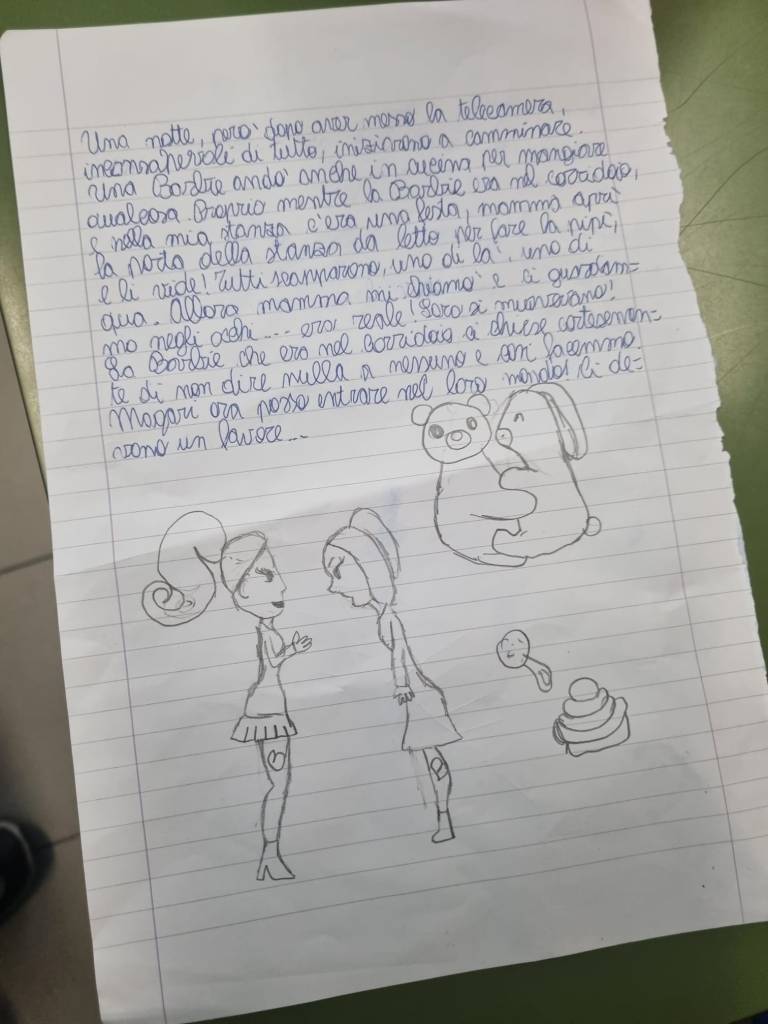 Una notte, però dopo aver messo la telecamera,
inconsapevoli di tutto, iniziarono a camminare.
una Barbie andò anche in cucina per mangiare
qualcosa. Proprio mentre la Barbie era nel corridoio,
e nella mia stanza c'era una festa, mamma aprì
la porta della stanza da letto per fare la pipì,
e li vide! Tutti scapparono, uno di là, uno di
qua. Allora mamma mi chiamò e ci guardam=
mo negli occhi... era reale! Loro si muovevano!
La Barbie che era nel corridoio ci chiese cortesemen=
te di non dire nulla a nessuno e così facemmo
Magari ora posso entrare nel loro mondo! Ci de=
vono un favore...